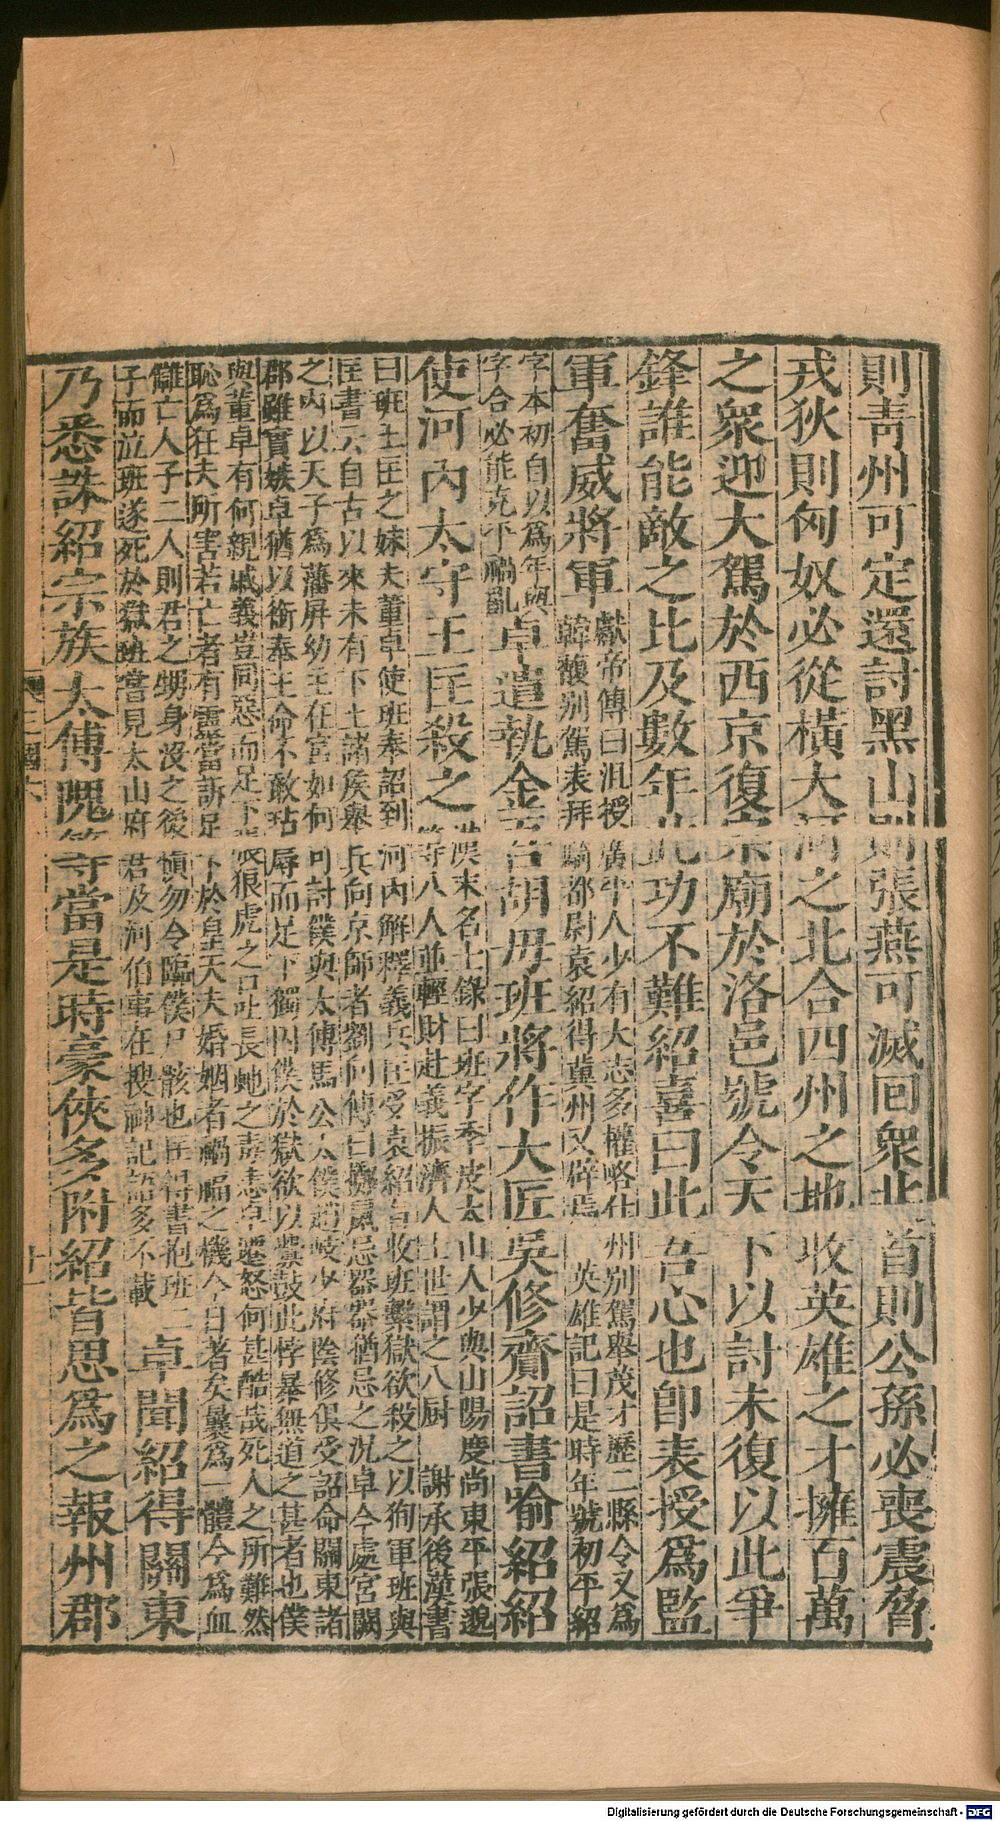 則青州可定還討黑山則張燕可滅回衆北首則公孫必喪震脅
戎狄則匈奴必從橫大河之北合四州之地收英雄之才擁百萬
之衆迎大駕於西京復宗廟於洛邑號令天下以討未復以此爭
鋒誰能敵之比及數年此功不難紹喜曰此吾心也卽表授爲監
軍奮威將軍
獻帝傳曰沮授廣平人少有大志多權略仕州別駕舉茂才歷二縣令又爲
韓馥別駕表拜騎都尉袁紹得冀州又辟焉 英雄記曰是時年號初平紹
字本初自以爲年與
字合必能克平禍亂
卓遣執金吾胡毋班將作大匠吳修齎詔書喻紹紹
使河內太守王匡殺之
漢末名士錄曰班字季皮太山人少與山陽度尚東平張邈
等八人並輕財赴義振濟人士世謂之八厨 謝承後漢書
曰班王匡之妹夫董卓使班奉詔到河內解釋義兵匡受袁紹旨收班繫獄欲殺之以徇軍班與
匡書云自古以來未有下土諸侯舉兵向京師者劉向傳曰擲鼠忌器器猶忌之況卓今處宮闕
之內以天子爲藩屏幼主在宮如何可討僕與太傅馬公太僕趙岐少府陰修俱受詔命關東諸
郡雖實嫉卓猶以銜奉王命不敢玷辱而足下獨囚僕於獄欲以釁鼓此悖暴無道之甚者也僕
與董卓有何親戚義豈同惡而足下張狼虎之口吐長虵之毒恚卓遷怒何甚酷哉死人之所難然
恥爲狂夫所害若亡者有靈當訴足下於皇天夫婚姻者禍福之機今日著矣曩爲一體今爲血
讎亡人子二人則君之甥身沒之後愼勿令臨僕尸骸也匡得書抱班二
子而泣班遂死於獄班嘗見太山府君及河伯事在搜神記語多不載
卓聞紹得關東
乃悉誅紹宗族太傅隗等當是時豪俠多附紹皆思爲之報州郡
三國六
十一
Digitalisierung gefördert durch die Deutsche Forschungsgemeinschaft - DFG